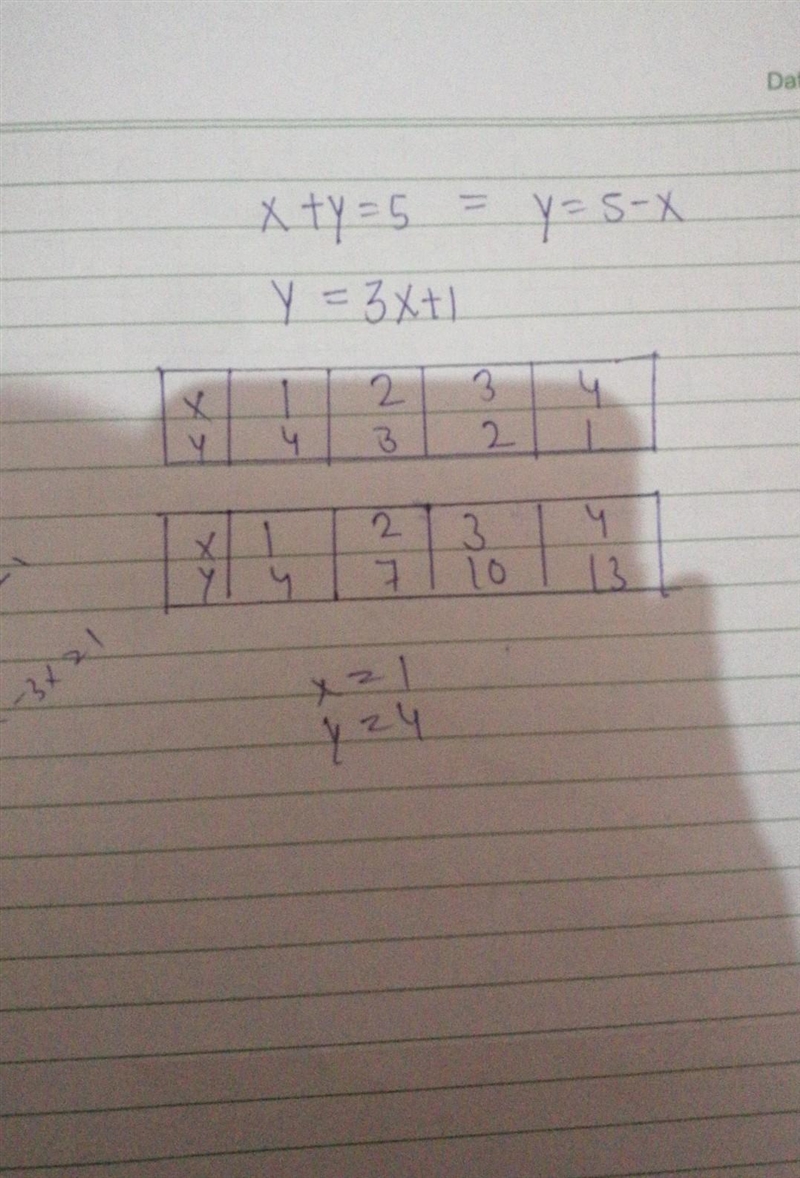 Dat
x + y = 5 = y = 5 - x
y = 3x + 1
x 1 2 3 4
y 4 3 2 1
x 1 2 3 4
y 4 7 10 13
-3x = 1
x = 1
y = 4